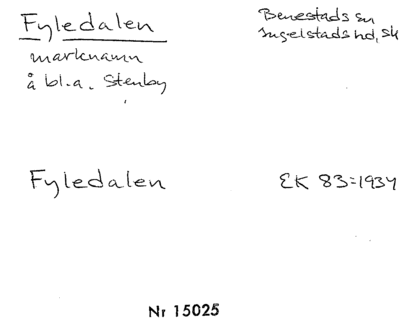 Fyledalen
Benestads sn
Ingelstads hd, Sk
marknamn
å bl.a. Stenby
Fyledalen
EK 83:1934
Nr 15025